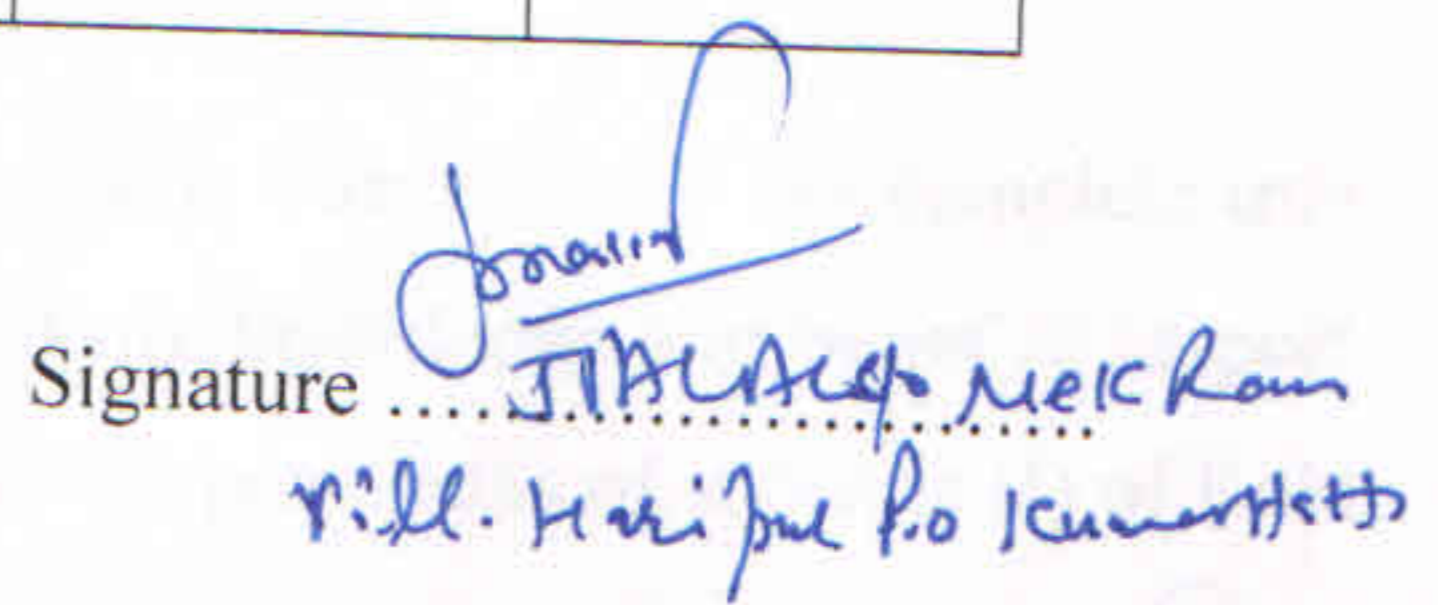 Signature ........................
JIALAL s/o MeK Ram
Vill. Haripur P.o KumarHatti